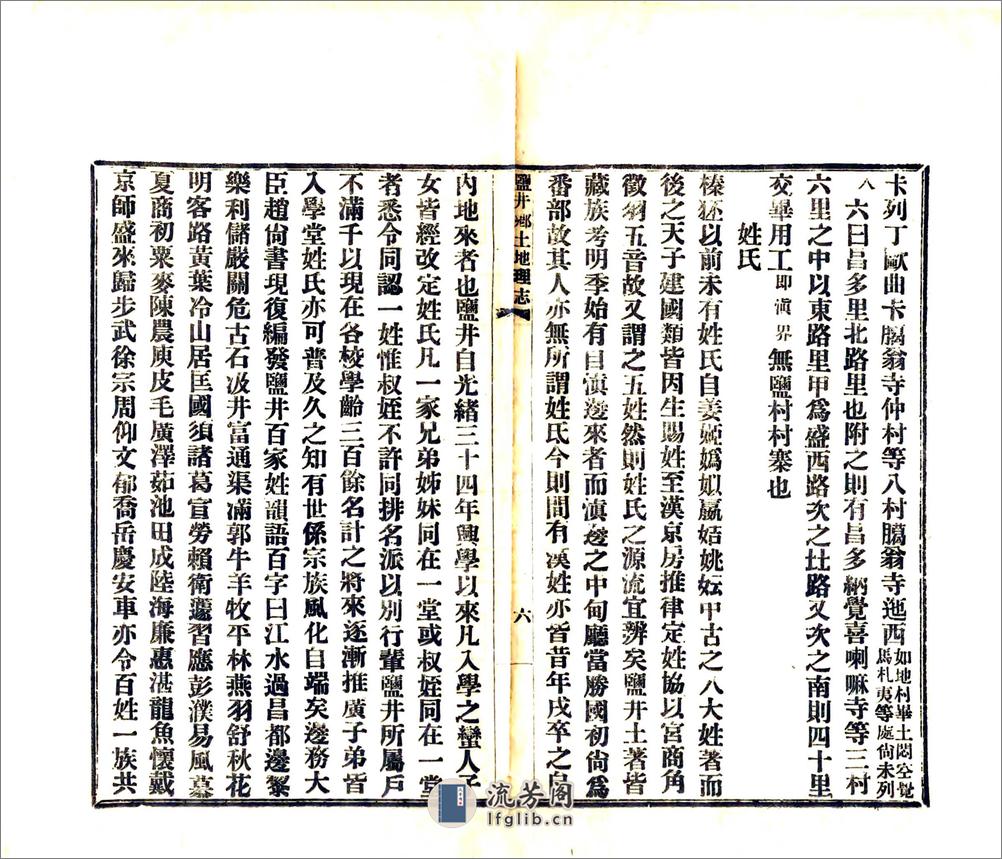 卡列丁歐曲卡臈翁寺仲村等八村臈翁寺迤西如地村畢土悶空覺馬札夷等處尙未列
入六曰昌多里北路里也附之則有昌多納覺喜喇嘛寺等三村
六里之中以東路里甲爲盛西路次之北路又次之南則四十里
交畢用工卽滇界無鹽村村寨也
姓氏
榛狉以前未有姓氏自姜姬嬀姒嬴姞姚妘中古之八大姓著而
後之天子建國類皆因生賜姓至漢京房推律定姓協以宮商角
徵羽五音故又謂之五姓然則姓氏之源流宜辨矣鹽井土著皆
藏族考明季始有自滇邊來者而滇邊之中甸廳當勝國初尙爲
番部故其人亦無所謂姓氏今則間有漢姓亦皆昔年戍卒之自
鹽井鄉土地理志
六
內地來者也鹽井自光緖三十四年興學以來凡入學之蠻人子
女皆經改定姓氏凡一家兄弟姊妹同在一堂或叔姪同在一堂
者悉令同認一姓惟叔姪不許同排名派以別行輩鹽井所屬戶
不滿千以現在各校學齡三百餘名計之將來逐漸推廣子弟皆
入學堂姓氏亦可普及久之知有世係宗族風化自端矣邊務大
臣趙尙書現復編發鹽井百家姓韻語百字曰江水過昌都邊黎
樂利儲嚴關危古石汲井富通渠滿郭牛羊牧平林燕羽舒秋花
明客路黃葉冷山居匡國須諸葛宣勞賴衛蘧習應彭濮易風慕
夏商初粟麥陳農庾皮毛廣澤茹池田成陸海廉惠湛龍魚懷戴
京師盛來歸步武徐宗周仰文郁喬岳慶安車亦令百姓一族共
流芳阁
lfglib.cn